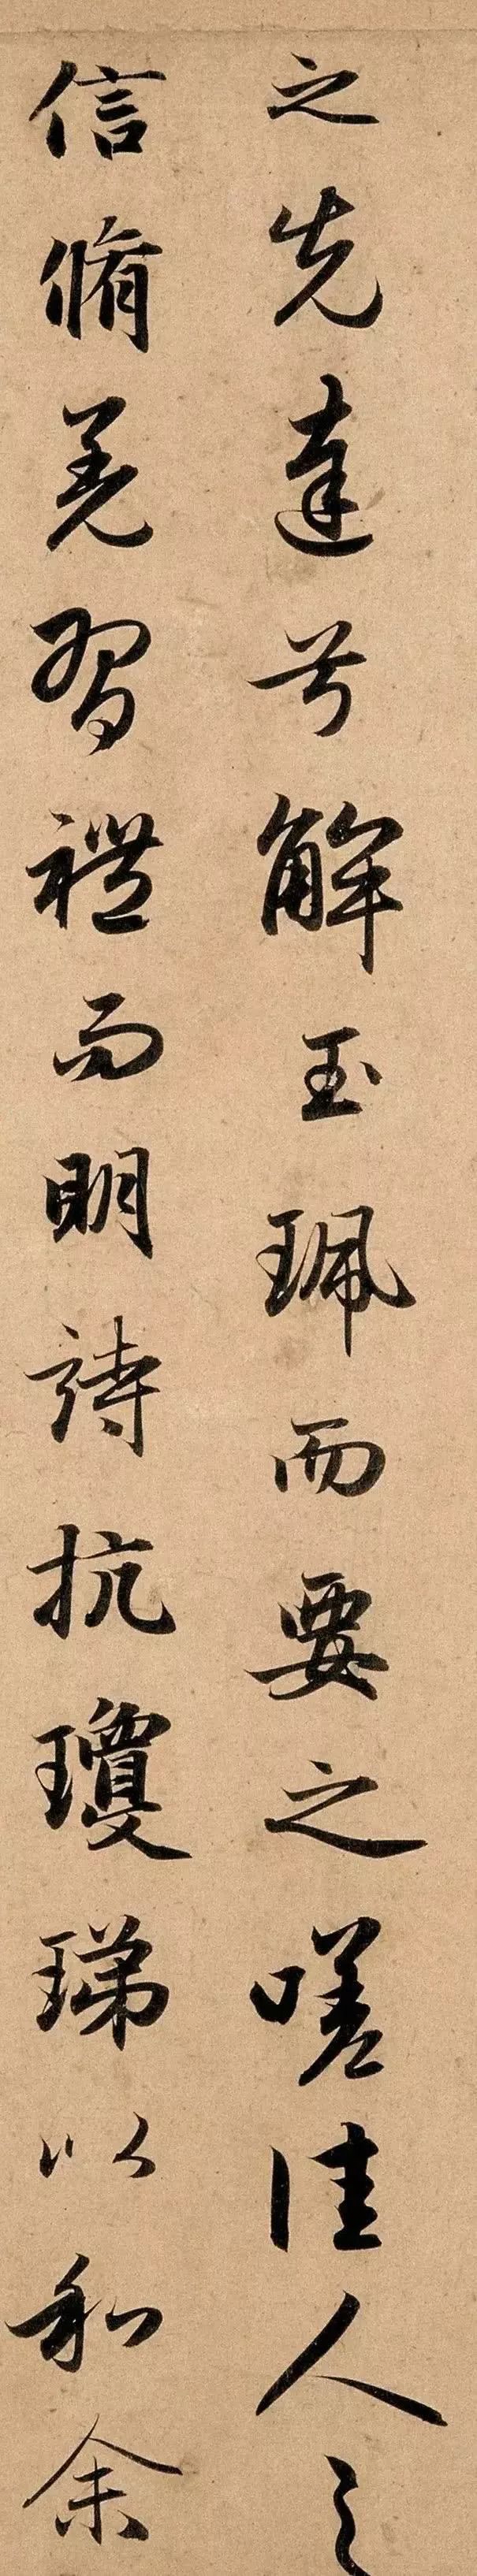 之先達兮解玉珮而要之嗟佳人之
信脩羌習禮而明詩抗瓊珶以和余